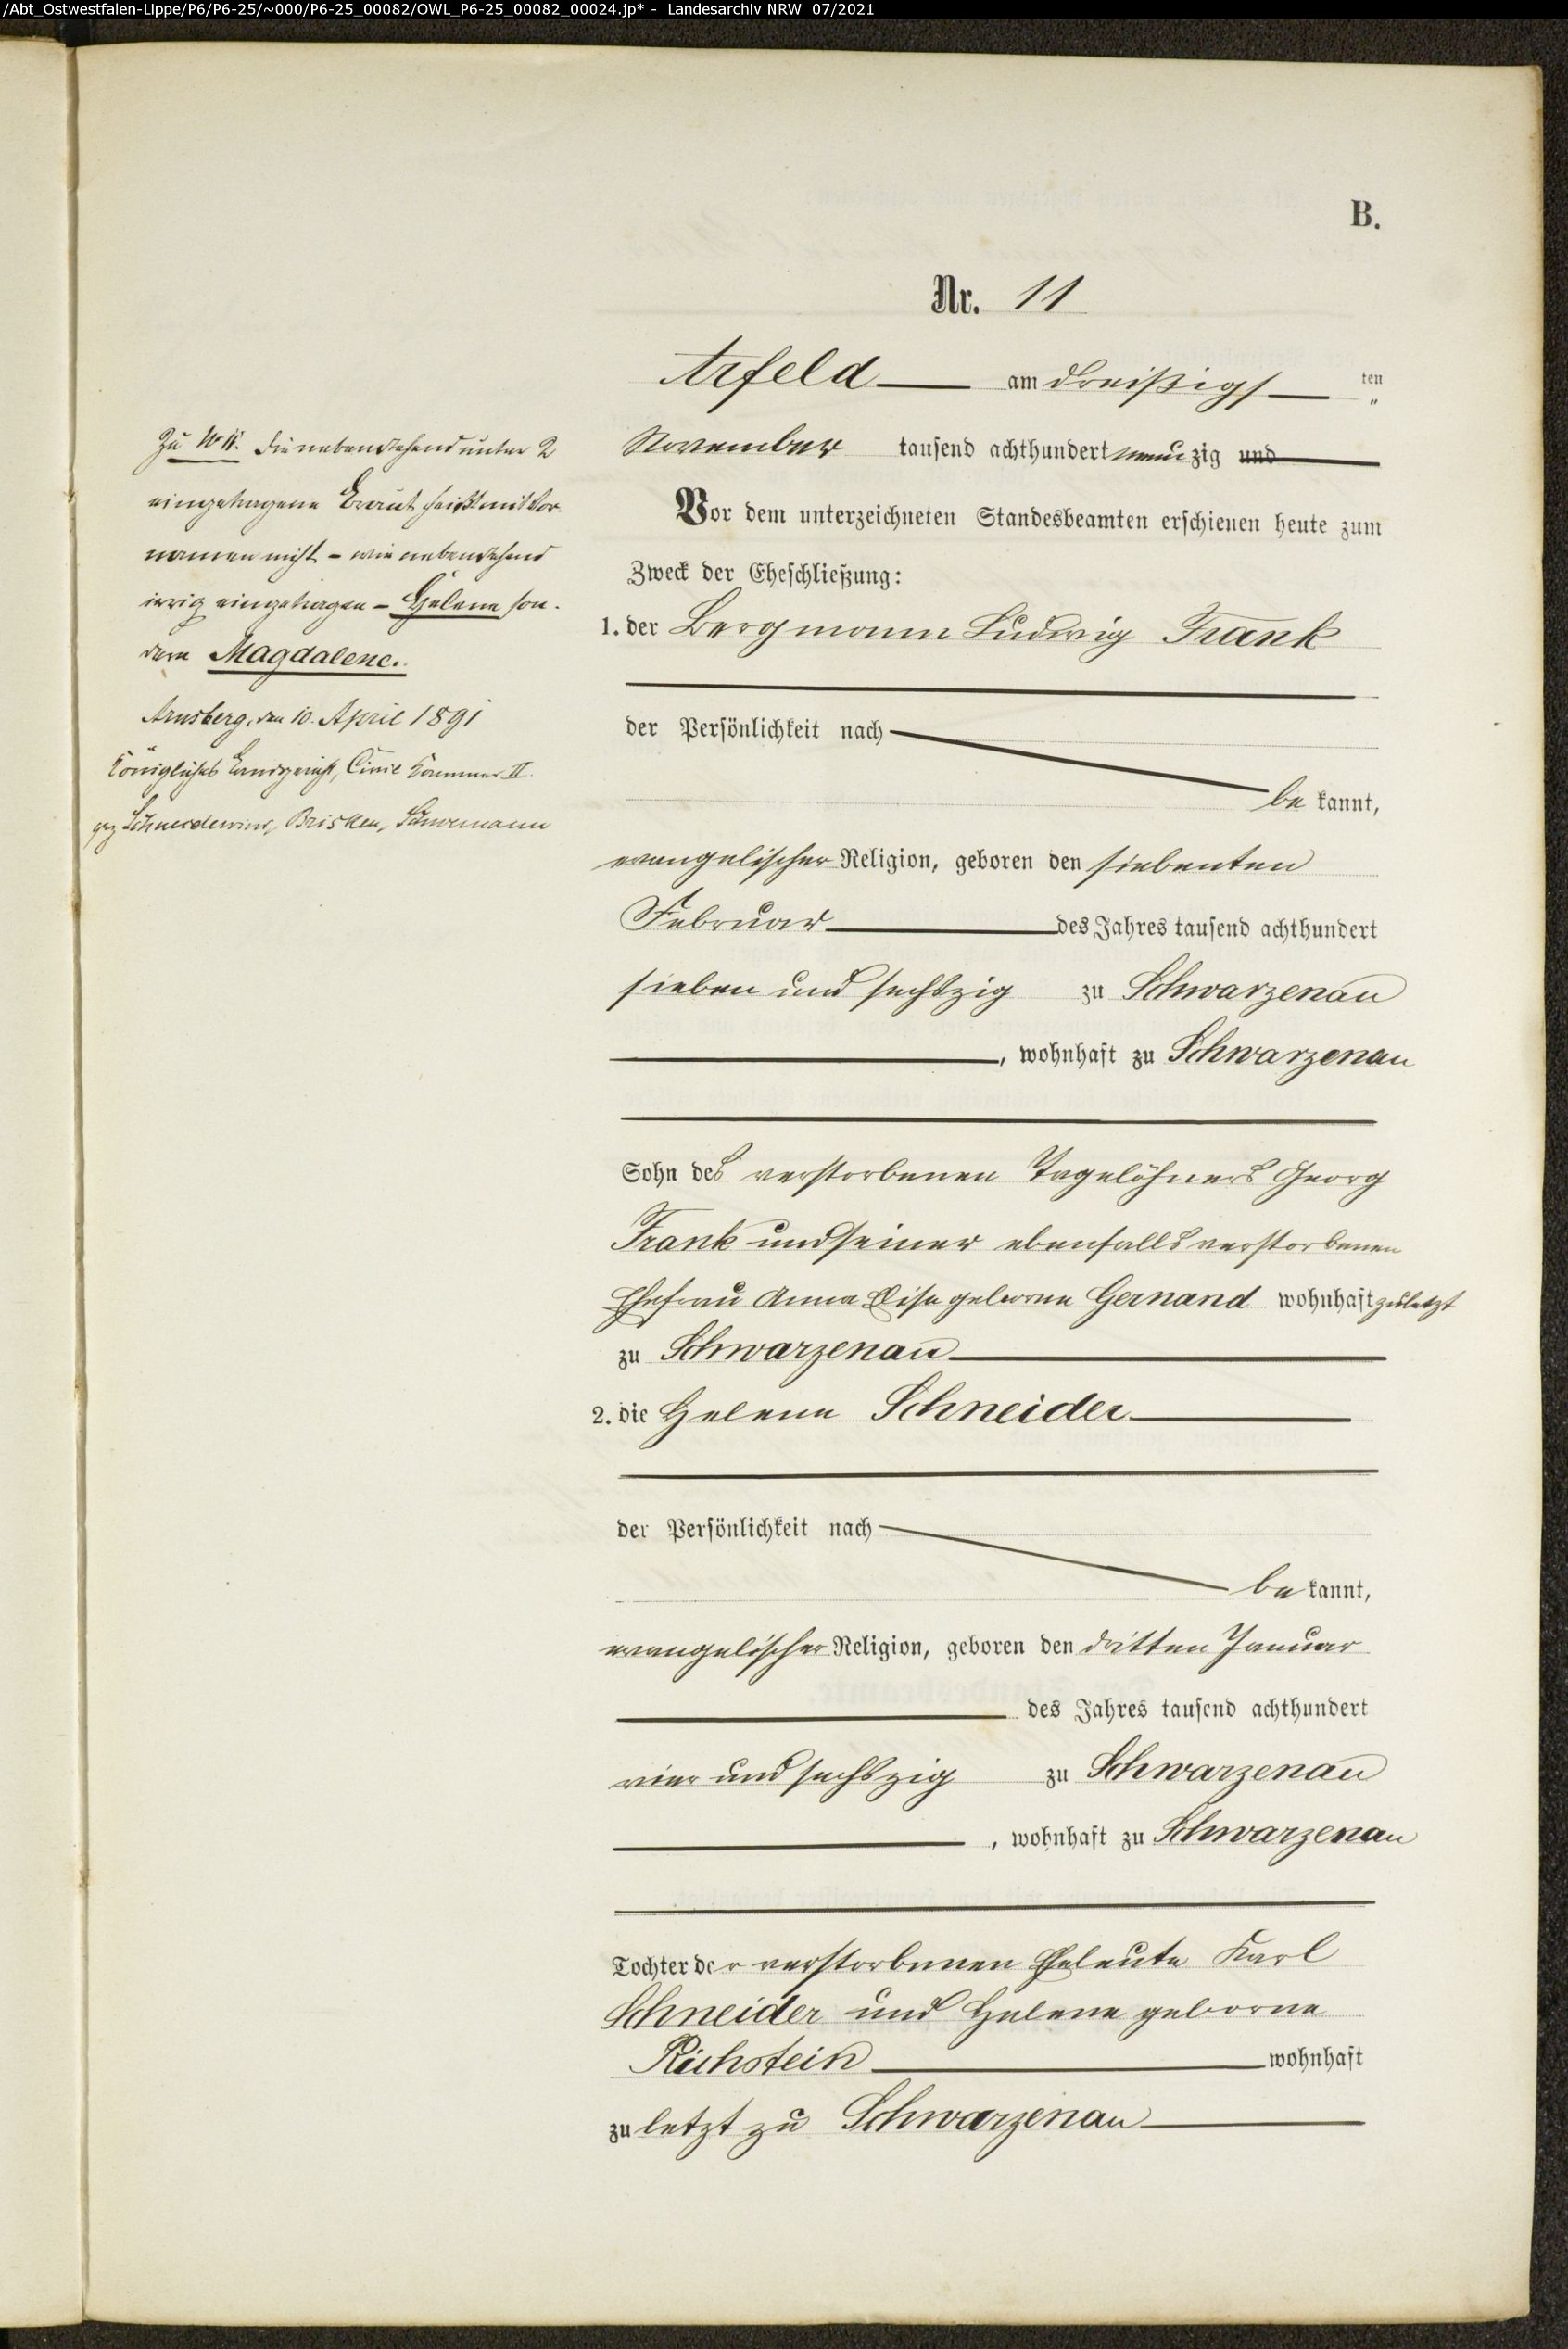 /Abt_Ostwestfalen-Lippe/P6/P6-25/~000/P6-25_00082/OWL_P6-25_00082_00024.jp* - Landesarchiv NRW 07/2021
B.
Nr. 11
Arfeld am dreißigs ten
November tausend achthundert neunzig und
Vor dem unterzeichneten Standesbeamten erschienen heute zum
Zweck der Eheschließung:
1. der Bergmann Ludwig Frank
der Persönlichkeit nach
bekannt,
evangelischer Religion, geboren den siebenten
Februar des Jahres tausend achthundert
sieben und sechszig zu Schwarzenau
, wohnhaft zu Schwarzenau
Sohn des verstorbenen Tagelöhners Georg
Frank und seiner ebenfalls verstorbenen
Ehefrau Anna Elise geborne Gernand wohnhaft zuletzt
zu Schwarzenau
2. die Helene Schneider
der Persönlichkeit nach
bekannt,
evangelischer Religion, geboren den dritten Januar
des Jahres tausend achthundert
vier und sechszig zu Schwarzenau
, wohnhaft zu Schwarzenau
Tochter der verstorbenen Eheleute Karl
Schneider und Helene geborne
Richstein wohnhaft
zuletzt zu Schwarzenau
Zu No 11. Die nebenstehend unter 2
eingetragene Braut heißt mit Vor-
namen nicht - wie nebenstehend
irrig eingetragen - Helene son-
dern Magdalene.
Arnsberg, den 10. April 1891
Königliches Landgericht, Civil Kammer II.
gez Schneidewind, Brisken,